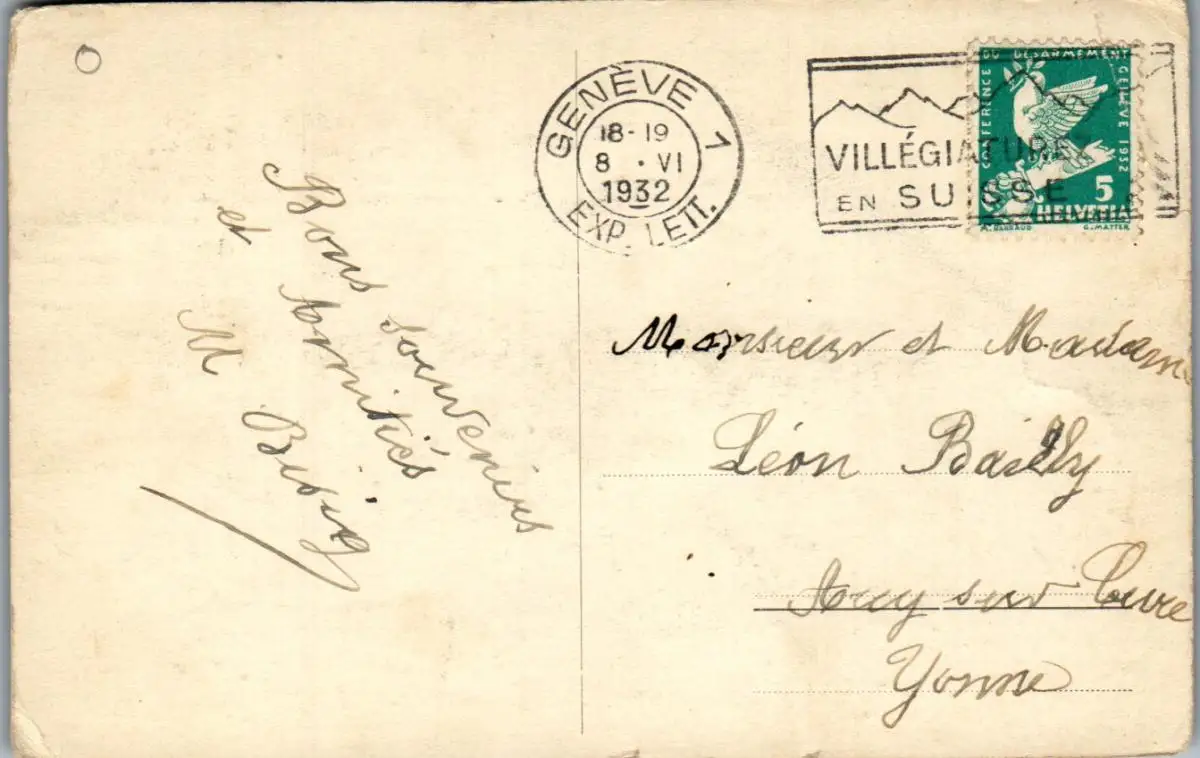 GENÈVE 1
18-19
8 • VI
1932
EXP. LETT.
VILLÉGIATURE
EN SUISSE
CONFERENCE DU DESARMEMENT GENEVE 1932
5
HELVETIA
A. BARRAUD
G. MATTER
Bons souvenirs
et Amitiés
M
Monsieur et Madame
Léon Bailly
sur Cure
Yonne